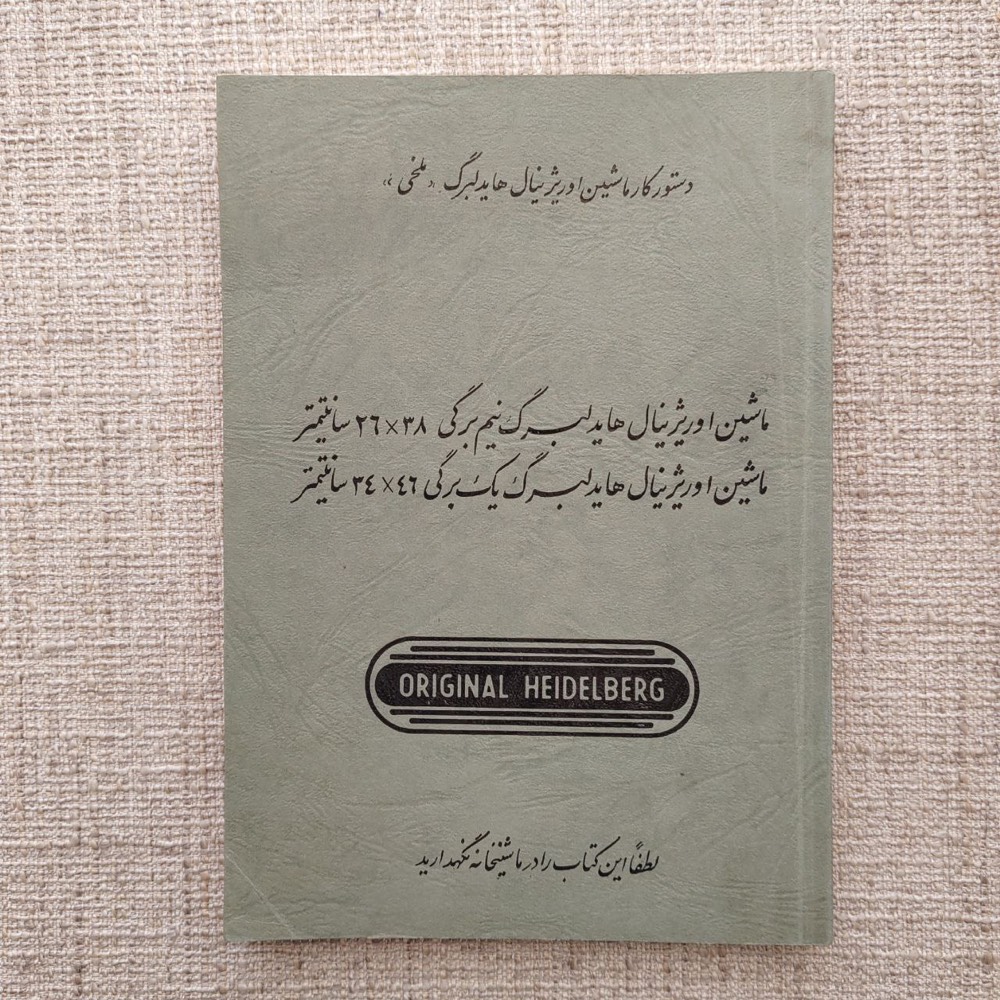 دستور کار ماشین اوریژینال هایدلبرگ «ملخی»
ماشین اوریژینال هایدلبرگ نیم برگی ۳۸×۲٦ سانتیمتر
ماشین اوریژینال هایدلبرگ یک برگی ٤٦×۳٤ سانتیمتر
ORIGINAL HEIDELBERG
لطفاً این کتاب را در ماشینخانه نگهدارید